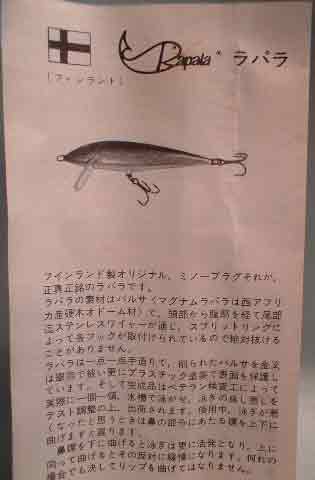 Rapala® ラパラ
[フィンランド]
フインランド製オリジナル、ミノープラグそれが、
正真正銘のラパラです。
ラパラの素材はバルサ(マグナムラパラは西アフリ
カ産硬木オドーム材)で、頭部から腹部を経て尾部
迄ステンレスワイヤーが通じ、スプリットリングに
よって各フックが取付けられているので絶対抜ける
ことがありません。
ラパラは一点一点手造りで、削られたバルサを金又
は銀箔で被い更にプラスチック塗装で表面を保護し
ています。そして完成品はベテラン検査工によって
実際に一個一個、水槽で泳がせ、泳ぎの良し悪しを
テスト調整の上、出荷されます。使用中、泳ぎが悪
くなったと思うときは鼻の部分にあたる環を上下に
曲げますと直ります。
鼻環を下に曲げると泳ぎは更に活発となり、上に
向って曲げるとその反対に緩慢になります。何れの
場合でも決してリップを曲げてはなりません。